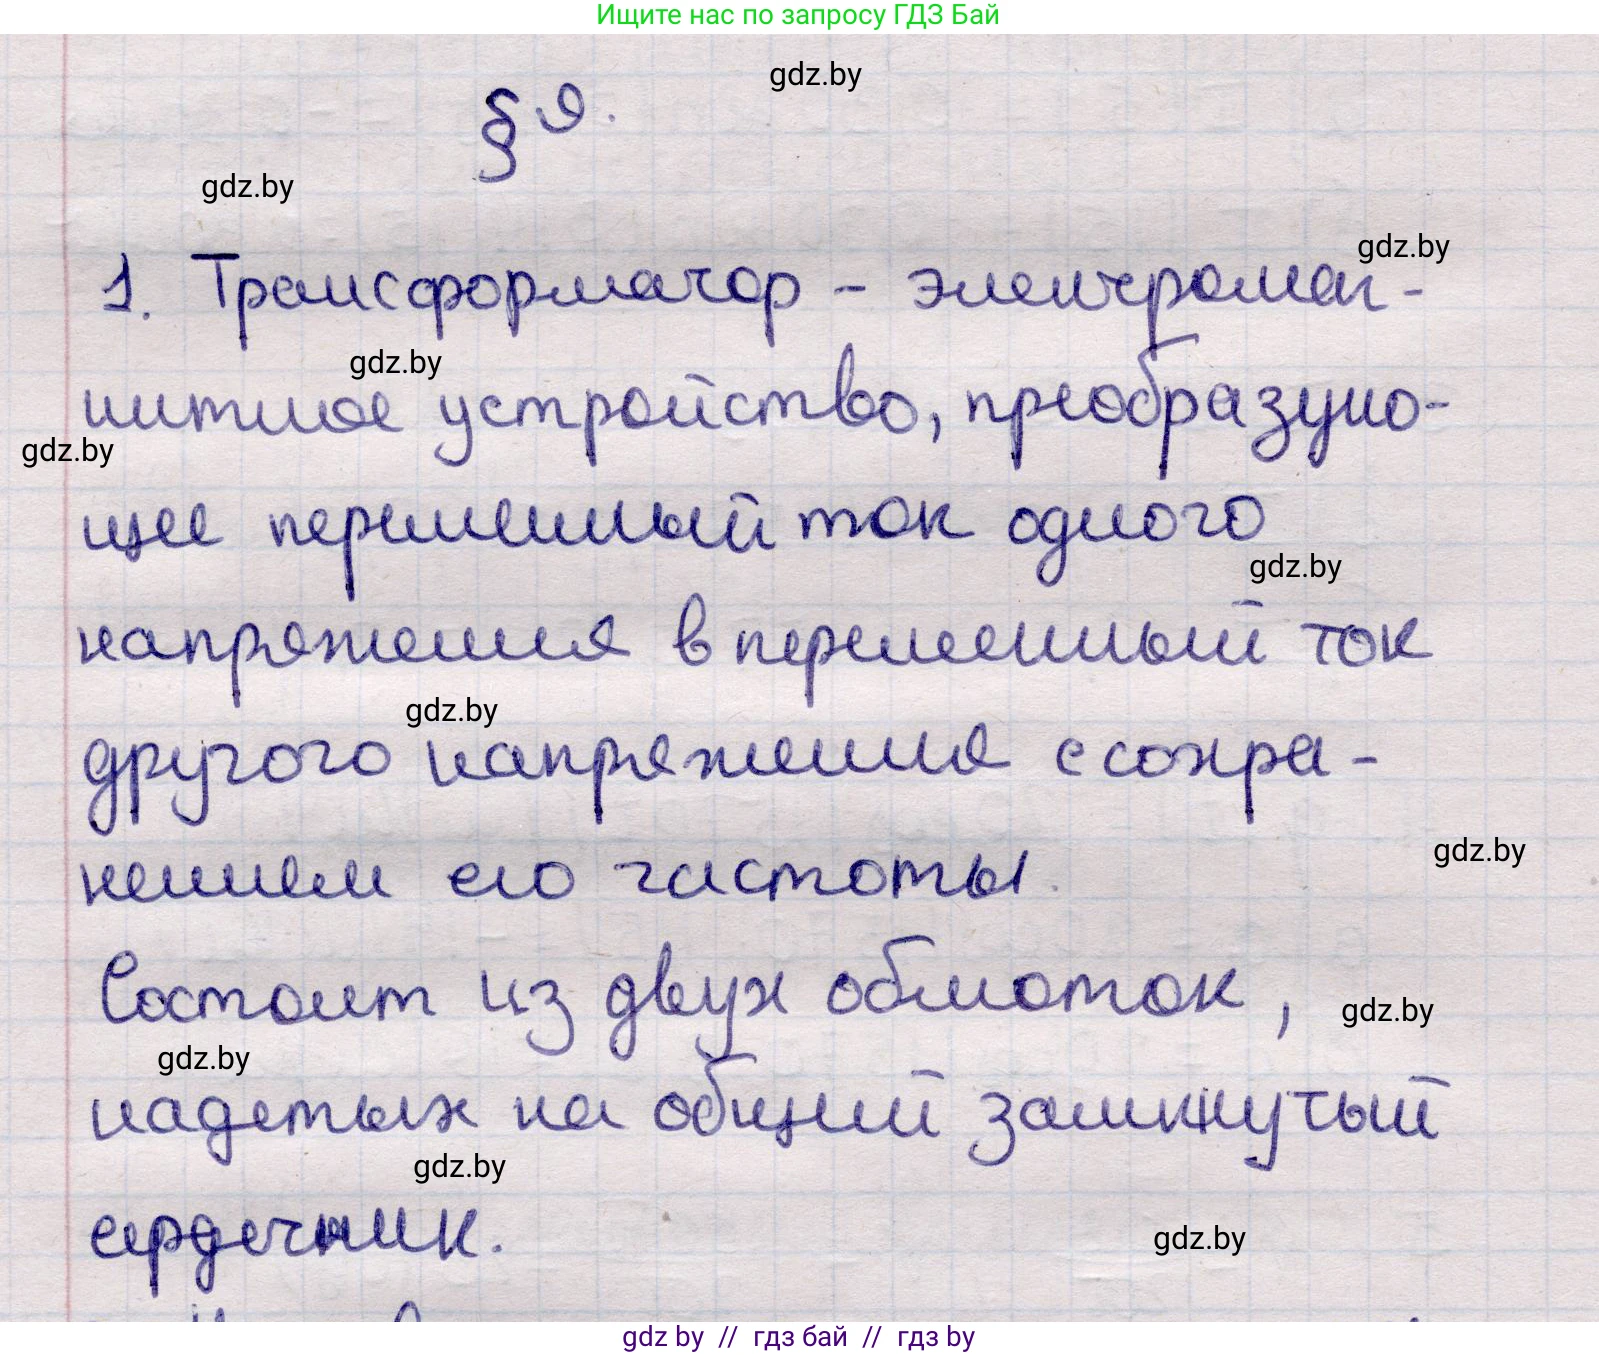 Ищите нас по запросу ГДЗ Бай
gdz.by
§ 9.
gdz.by
gdz.by
1. Трансформатор - электромаг-
gdz.by
нитное устройство, преобразую-
gdz.by
щее переменный ток одного
gdz.by
напряжения в переменный ток
gdz.by
другого напряжения с сохра-
gdz.by
нением его частоты.
Состоит из двух обмоток,
gdz.by
gdz.by
надетых на общий замкнутый
gdz.by
сердечник.
gdz.by
gdz by // гдз бай // гдз by